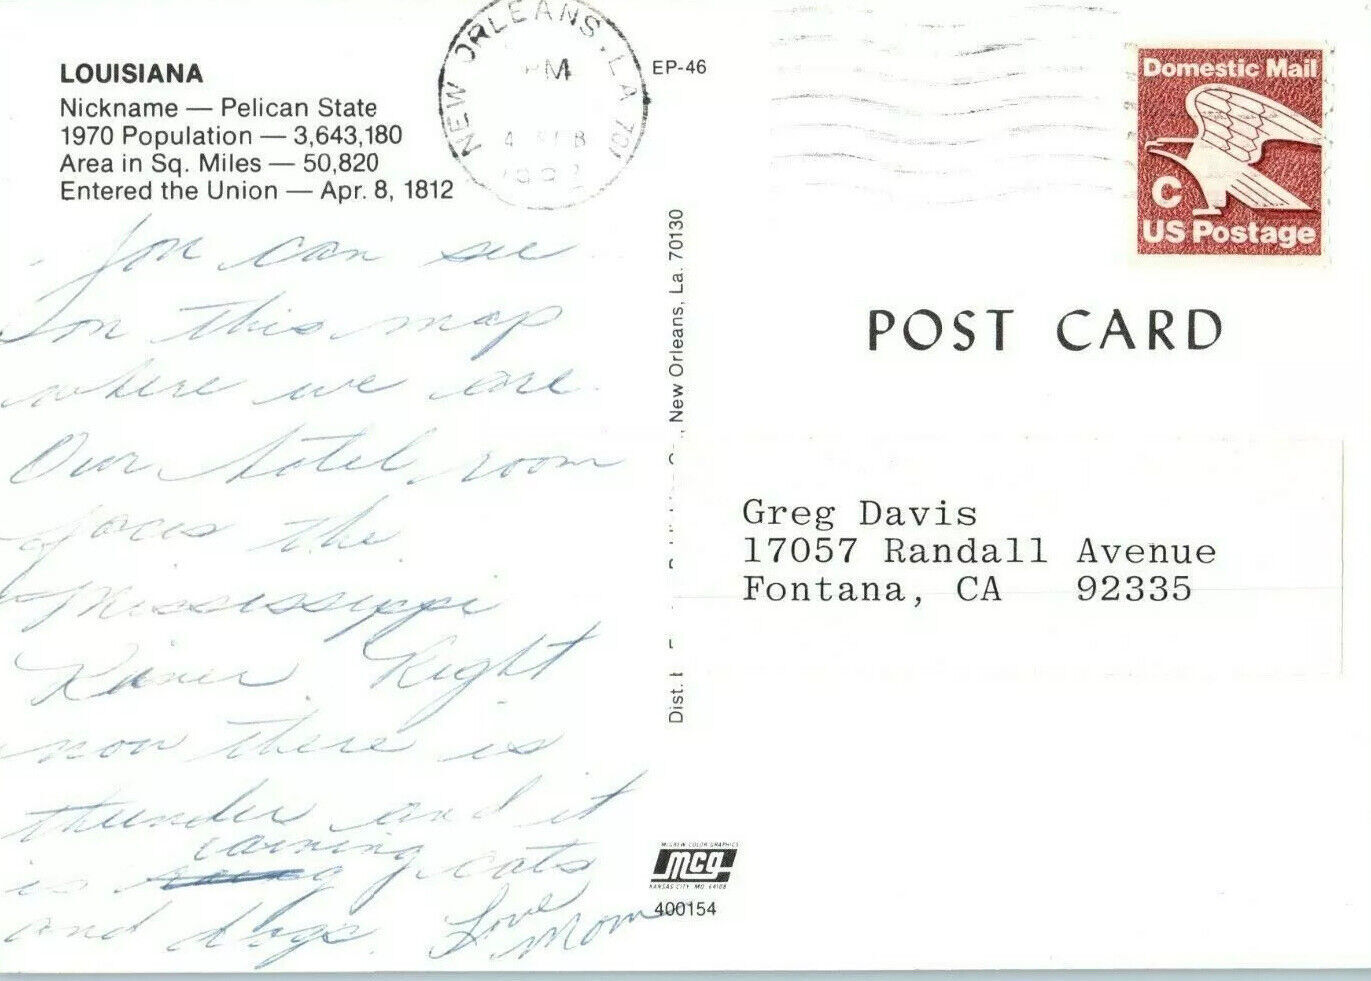 LOUISIANA
Nickname — Pelican State
1970 Population — 3,643,180
Area in Sq. Miles — 50,820
Entered the Union — Apr. 8, 1812
NEW ORLEANS, LA 701
PM
4 FEB
EP-46
Domestic Mail
C
US Postage
POST CARD
You can see
on this map
where we are.
Our hotel room
faces the
Mississippi
River. Right
now there is
thunder and it
raining
is cats
and dogs. Love
Mom
Dist. New Orleans, La. 70130
Greg Davis
17057 Randall Avenue
Fontana, CA 92335
McGREW COLOR GRAPHICS
mcg
KANSAS CITY, MO. 64108
400154